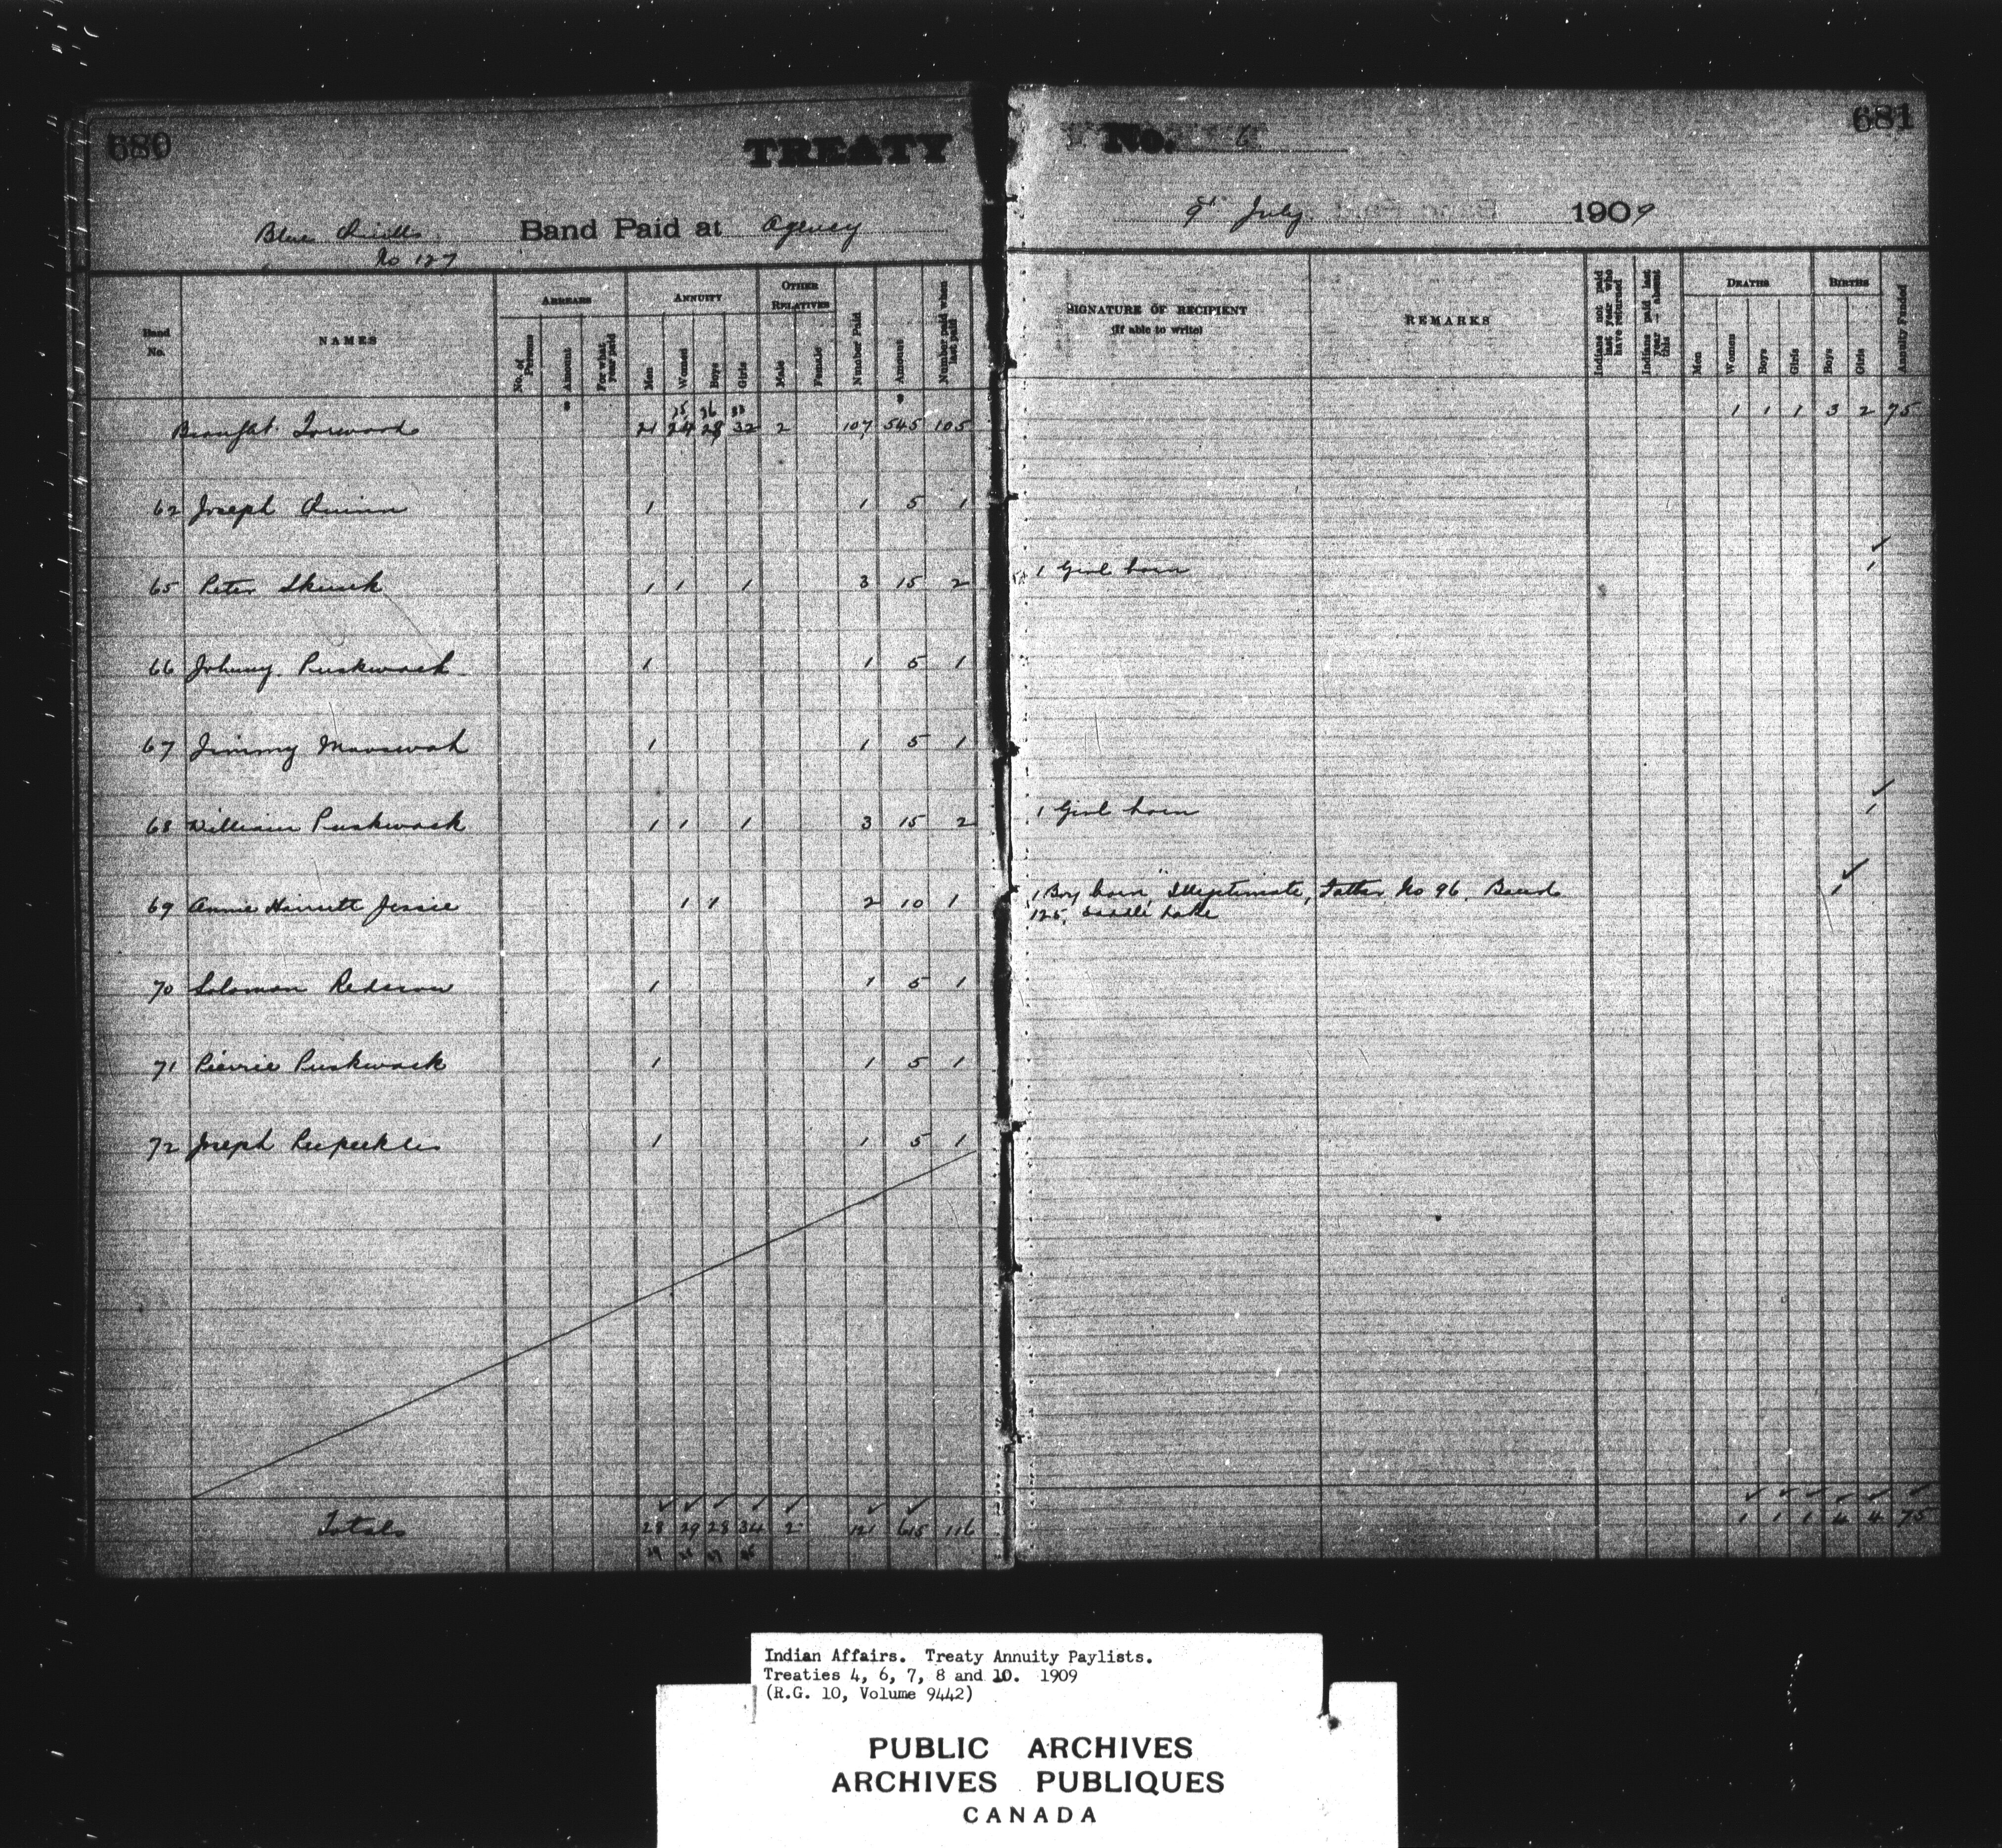 680
TREATY
No. 6
681
Blue Quills Band Paid at Agency
9th July 1909
No 127
Band No.
NAMES
ARREARS
No. of Persons
Amount
For what year paid
ANNUITY
Men
Women
Boys
Girls
OTHER RELATIVES
Male
Female
Number Paid
Amount
Number paid when last paid
SIGNATURE OF RECIPIENT
(If able to write)
REMARKS
Indians not paid last year who have returned
Indians paid last year — absent this
DEATHS
Men
Women
Boys
Girls
BIRTHS
Boys
Girls
Annuity Funded
$ $
25 26 33
Brought Forward 21 24 28 32 2 107 545 105 1 1 1 3 2 75
62 Joseph Quinn 1 1 5 1
65 Peter Skunk 1 1 1 3 15 2 1 Girl born 1
66 Johnny Puskwack 1 1 5 1
67 Jimmy Mooswah 1 1 5 1
68 William Puskwack 1 1 1 3 15 2 1 Girl born 1
69 Annie Harriett Jessie 1 1 2 10 1 1 Boy born, Illegitimate, Father No 96 Band 1
125, Saddle Lake
70 Solomon Redcrow 1 1 5 1
71 Pierrie Puskwack 1 1 5 1
72 Joseph 1 1 5 1
Totals 28 29 28 34 2 121 615 116 1 1 1 4 4 75
Indian Affairs. Treaty Annuity Paylists.
Treaties 4, 6, 7, 8 and 10. 1909
(R.G. 10, Volume 9442)
PUBLIC ARCHIVES
ARCHIVES PUBLIQUES
CANADA